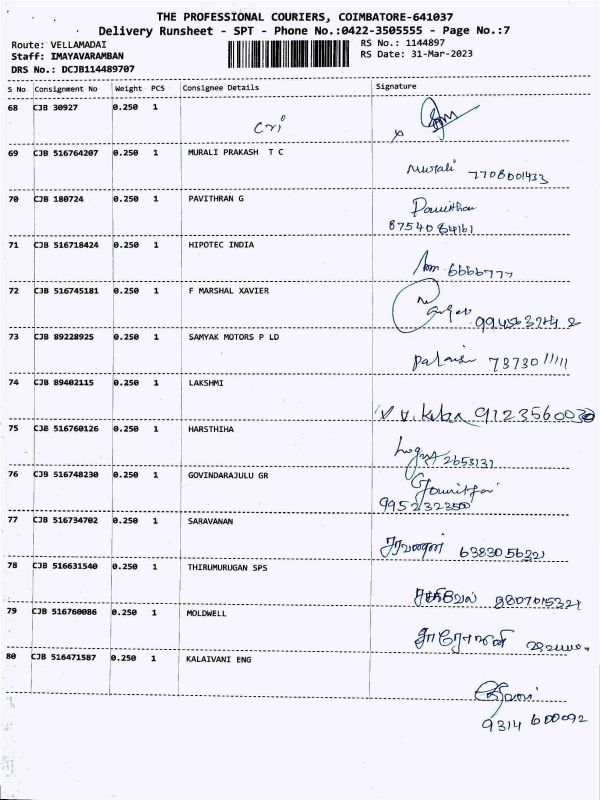 THE PROFESSIONAL COURIERS, COIMBATORE-641037
Delivery Runsheet - SPT - Phone No.:0422-3505555 - Page No.:7
Route: VELLAMADAI
Staff: IMAYAVARAMBAN
DRS No.: DCJB114489707
RS No.: 1144897
RS Date: 31-Mar-2023
S No Consignment No Weight PCS Consignee Details Signature
68 CJB 30927 0.250 1
cri
69 CJB 516764207 0.250 1 MURALI PRAKASH T C
Murali 7708001433
70 CJB 180724 0.250 1 PAVITHRAN G
Pavithran
8754084161
71 CJB 516718424 0.250 1 HIPOTEC INDIA
6666777
72 CJB 516745181 0.250 1 F MARSHAL XAVIER
73 CJB 89228925 0.250 1 SAMYAK MOTORS P LD
7373011111
74 CJB 89402115 0.250 1 LAKSHMI
V.V. 9123560030
75 CJB 516760126 0.250 1 HARSTHIHA
2653131
76 CJB 516748230 0.250 1 GOVINDARAJULU GR
9952323500
77 CJB 516734702 0.250 1 SARAVANAN
சரவணன் 638305622
78 CJB 516631540 0.250 1 THIRUMURUGAN SPS
சக்திவேல் 8807015321
79 CJB 516760086 0.250 1 MOLDWELL
80 CJB 516471587 0.250 1 KALAIVANI ENG
9314 600092